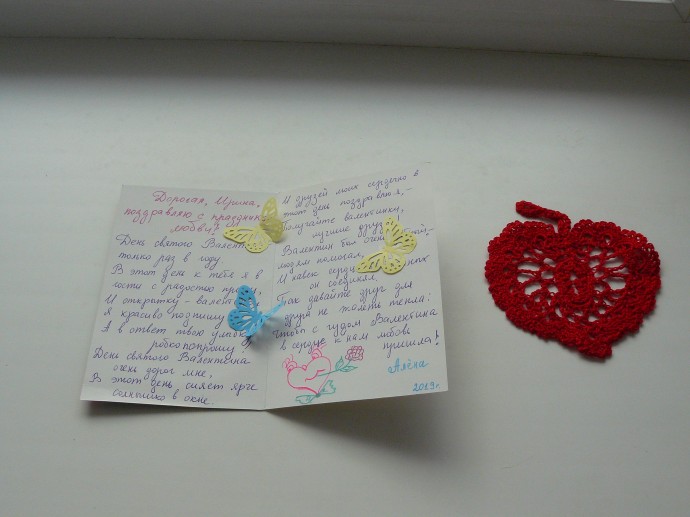 Дорогая, Ирина,
поздравляю с праздником
любви!
День святого Валент
только раз в году
В этот день к тебе я в
гости с радостью приду,
И открытку - вален
Я красиво подпишу
А в ответ твою улыб
робко попрошу!
День святого Валентина
очень дорог мне,
В этот день сияет ярче
солнышко в окне
И друзей моих сердечно я
этот день поздравляя, -
Получайте валентинку,
лучшие друзья!
Валентин был очень
людям помогал,
И навек сердца
он соединял.
Так давайте друг для
друга не жалеть тепла:
Чтоб с чудом Валентина
в сердце к нам любовь
пришла!
Алёна
2019г.